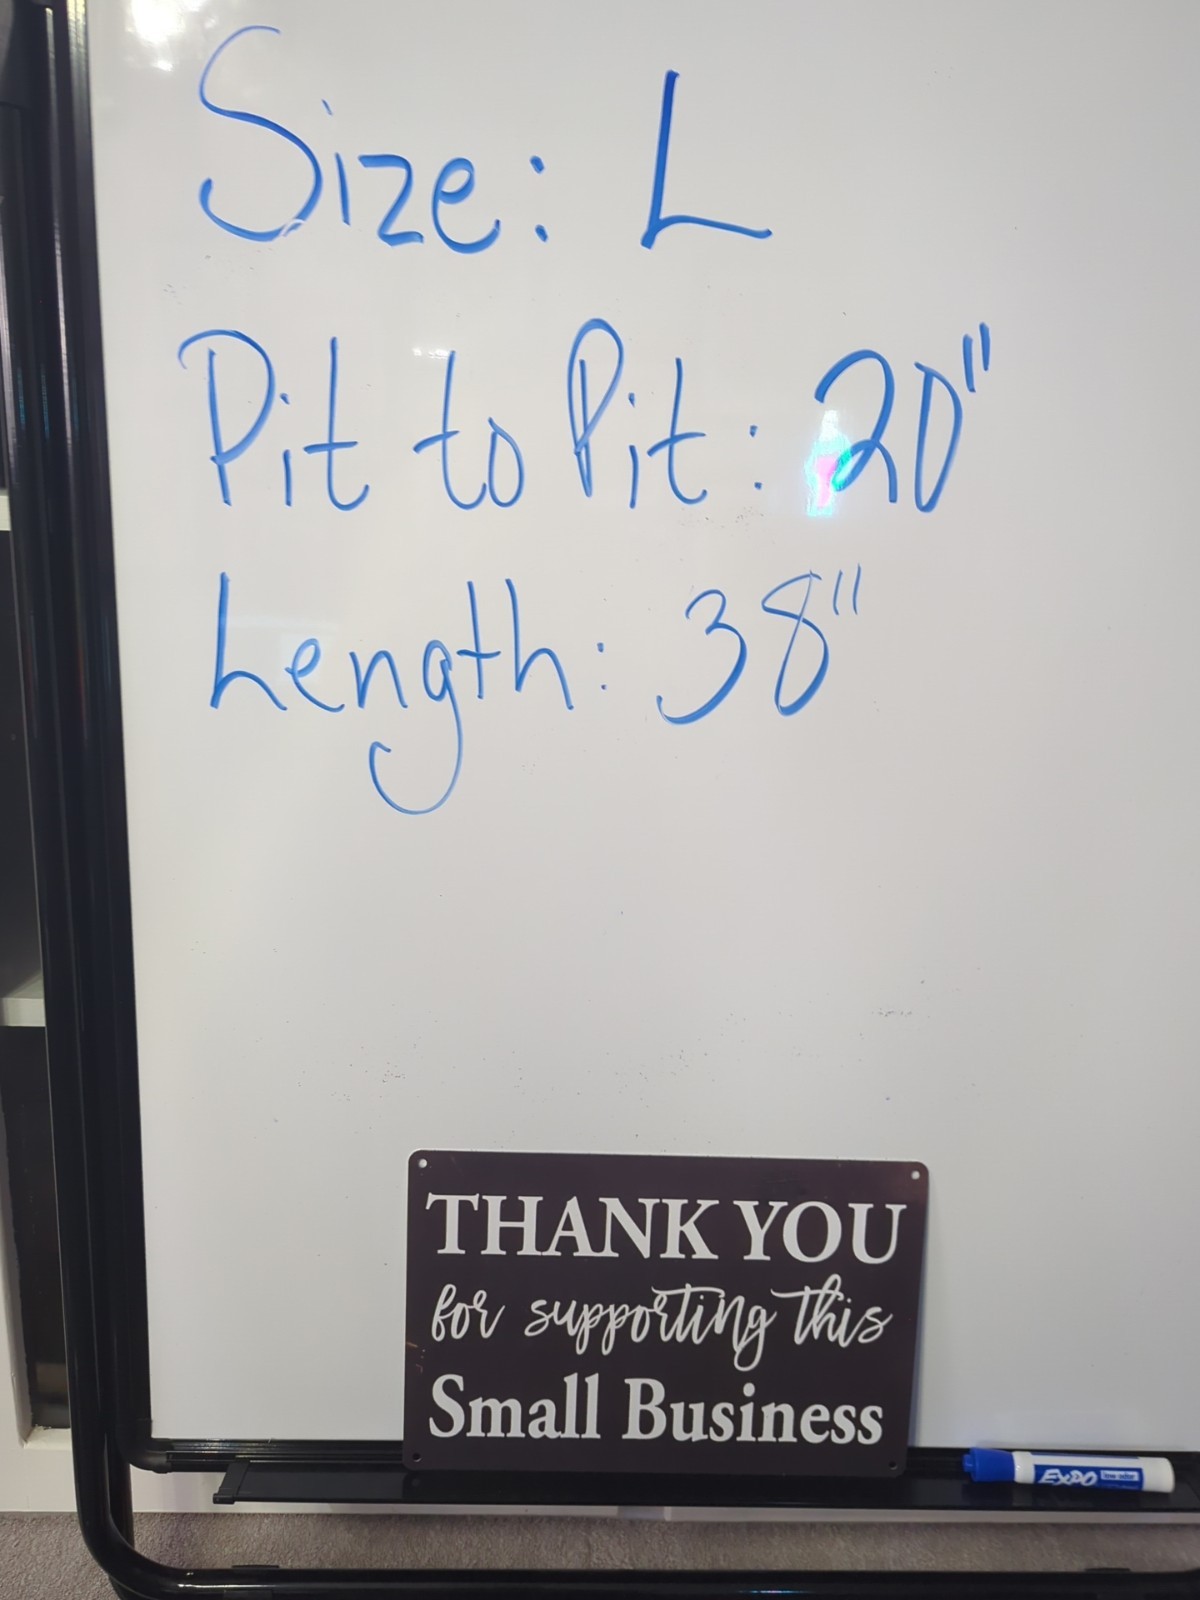 Size: L
Pit to Pit: 20"
Length: 38"
THANK YOU
for supporting this
Small Business
EXPO